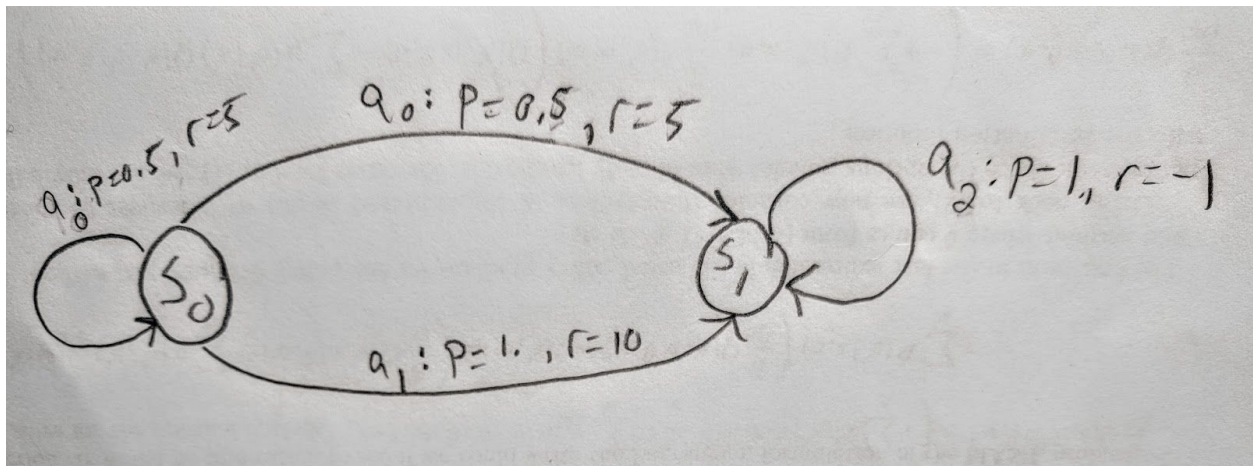 a₀: P=0,5, r=5
a₀: P=0.5, r=5
a₂: P=1., r=-1
S₀
S₁
a₁: P=1., r=10